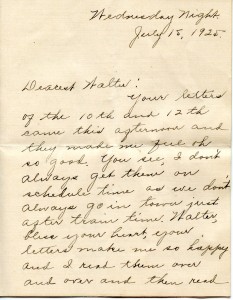 Wednesday Night
July 15, 1925
Dearest Walter:
Your letters
of the 10th and 12th
came this afternoon and
they made me feel oh
so good. You see, I don't
always get them on
schedule time as we don't
always go in town just
after train time. Walter,
bless your heart, your
letters make me so happy
and I read them over
and over and then read